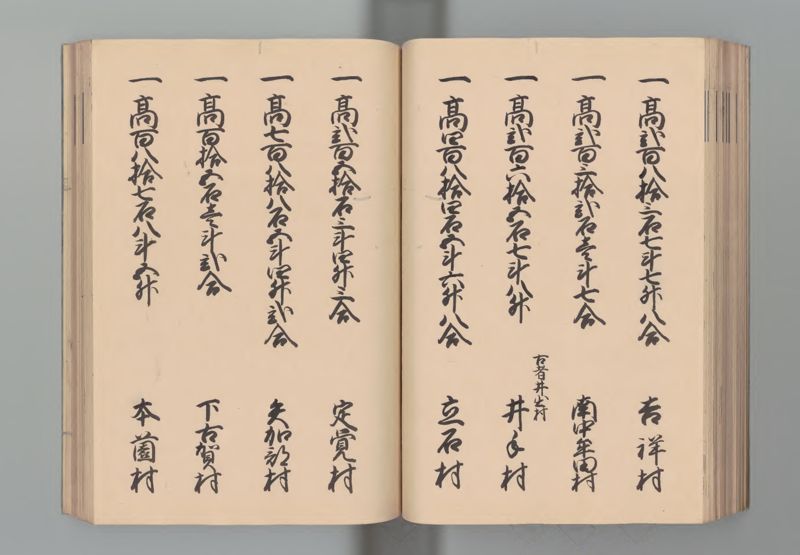 一 高弐百八拾三石七斗七升八合 吉祥村
一 高弐百三拾弐石壱斗七合 南中牟田村
一 高弐百六拾五石七斗八升 井手村
古者井出村
一 高四百八拾四石五斗六升八合 立石村
一 高弐百五拾石三斗四升三合 定覚村
一 高七百八拾八石五斗四升弐合 矢加部村
一 高百拾五石壱斗弐合 下古賀村
一 高百八拾七石八斗五升 本薗村